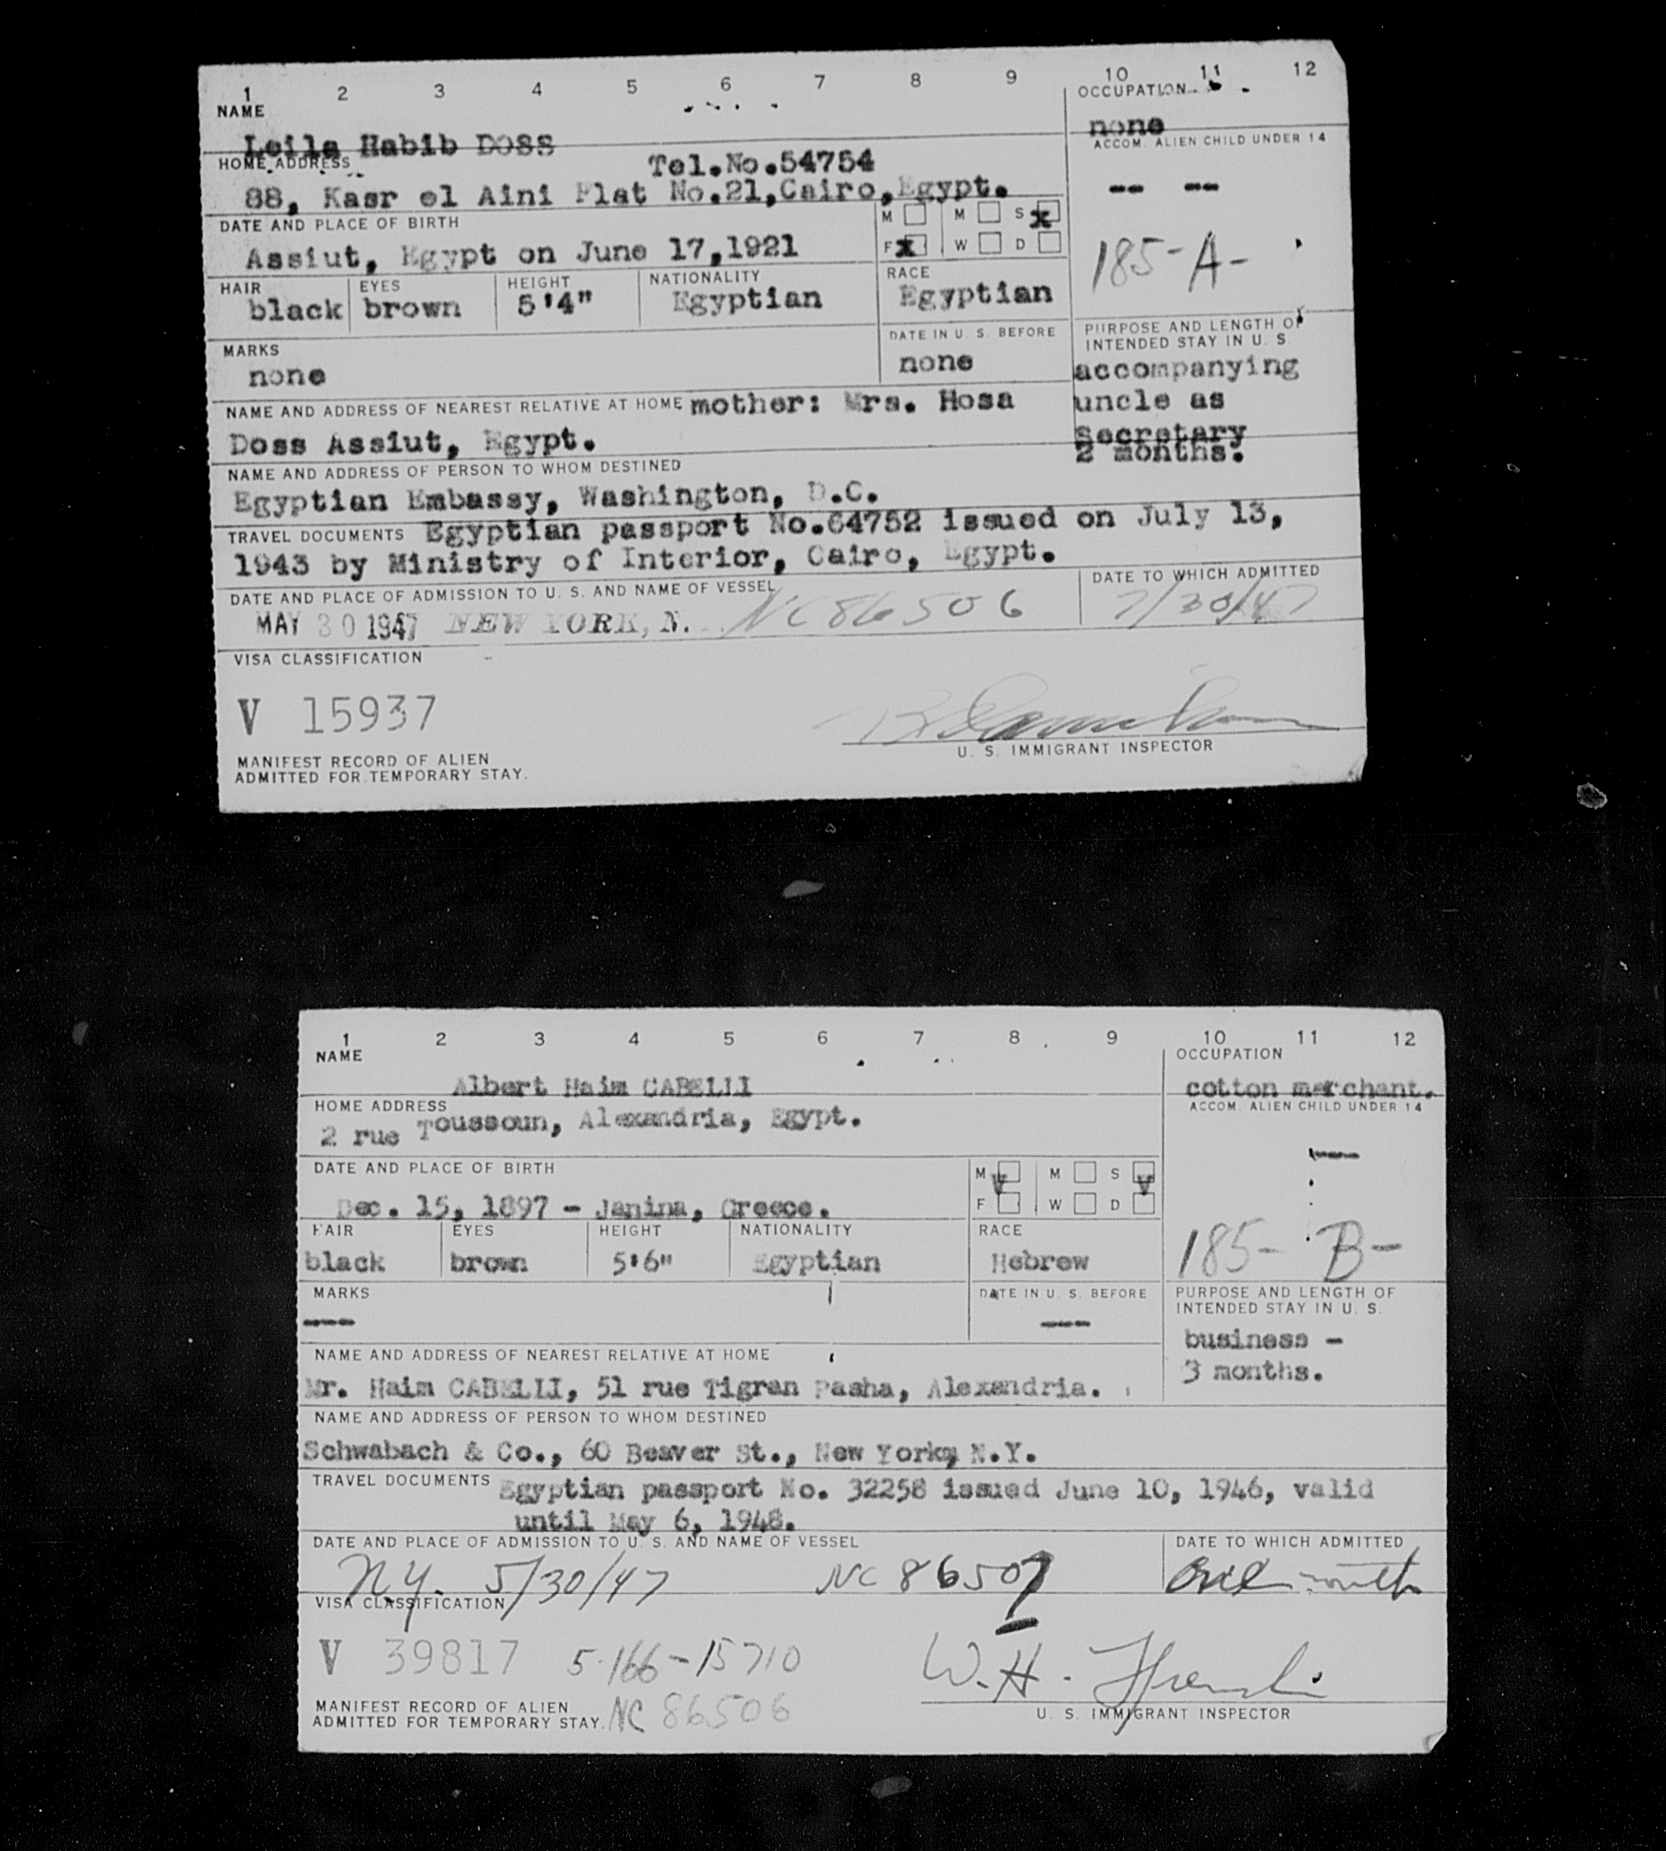 1 2 3 4 5 6 7 8 9 10 11 12
NAME OCCUPATION
Leila Habib DOSS none
HOME ADDRESS Tel.No.54754 ACCOM. ALIEN CHILD UNDER 14
88, Kasr el Aini Flat No.21,Cairo,Egypt. -- --
DATE AND PLACE OF BIRTH M M S x
Assiut, Egypt on June 17,1921 F x W D 185-A-
HAIR EYES HEIGHT NATIONALITY RACE
black brown 5'4" Egyptian Egyptian
MARKS DATE IN U. S. BEFORE PURPOSE AND LENGTH OF
INTENDED STAY IN U. S.
none none accompanying
NAME AND ADDRESS OF NEAREST RELATIVE AT HOME mother: Mrs. Hosa uncle as
Doss Assiut, Egypt. Secretary
2 months.
NAME AND ADDRESS OF PERSON TO WHOM DESTINED
Egyptian Embassy, Washington, D.C.
TRAVEL DOCUMENTS Egyptian passport No.64752 issued on July 13,
1943 by Ministry of Interior, Cairo, Egypt.
DATE AND PLACE OF ADMISSION TO U. S. AND NAME OF VESSEL DATE TO WHICH ADMITTED
MAY 30 1947 NEW YORK, N. NC 86506 7/30/47
VISA CLASSIFICATION
V 15937
U. S. IMMIGRANT INSPECTOR
MANIFEST RECORD OF ALIEN
ADMITTED FOR TEMPORARY STAY.
1 2 3 4 5 6 7 8 9 10 11 12
NAME OCCUPATION
Albert Haim CABELLI cotton merchant.
HOME ADDRESS ACCOM. ALIEN CHILD UNDER 14
2 rue Toussoun, Alexandria, Egypt.
DATE AND PLACE OF BIRTH M V M S V
Dec. 15, 1897 - Janina, Greece. F W D
HAIR EYES HEIGHT NATIONALITY RACE 185- B-
black brown 5'6" Egyptian Hebrew
MARKS DATE IN U. S. BEFORE PURPOSE AND LENGTH OF
INTENDED STAY IN U. S.
--- --- business -
NAME AND ADDRESS OF NEAREST RELATIVE AT HOME 3 months.
Mr. Haim CABELLI, 51 rue Tigran Pasha, Alexandria.
NAME AND ADDRESS OF PERSON TO WHOM DESTINED
Schwabach & Co., 60 Beaver St., New York, N.Y.
TRAVEL DOCUMENTS Egyptian passport No. 32258 issued June 10, 1946, valid
until May 6, 1948.
DATE AND PLACE OF ADMISSION TO U. S. AND NAME OF VESSEL DATE TO WHICH ADMITTED
N.Y. 5/30/47 NC 86507 One month
VISA CLASSIFICATION
V 39817 5-166-15710 W. H. French
MANIFEST RECORD OF ALIEN
ADMITTED FOR TEMPORARY STAY. NC 86506 U. S. IMMIGRANT INSPECTOR